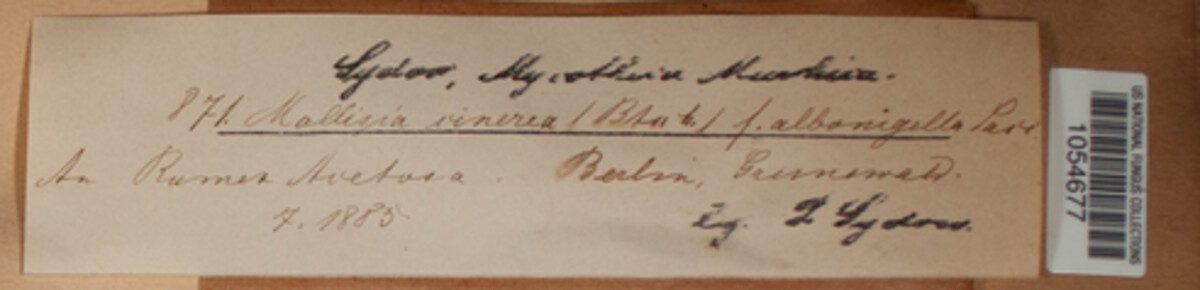 Sydow, Mycotheca Marchica.
871. Mollisia cinerea (Btsch.) f. albonigella Sacc.
An Rumex Acetosa. Berlin, Grunewald.
7. 1885
Lg. P. Sydow.
US NATIONAL FUNGUS COLLECTIONS
1054677